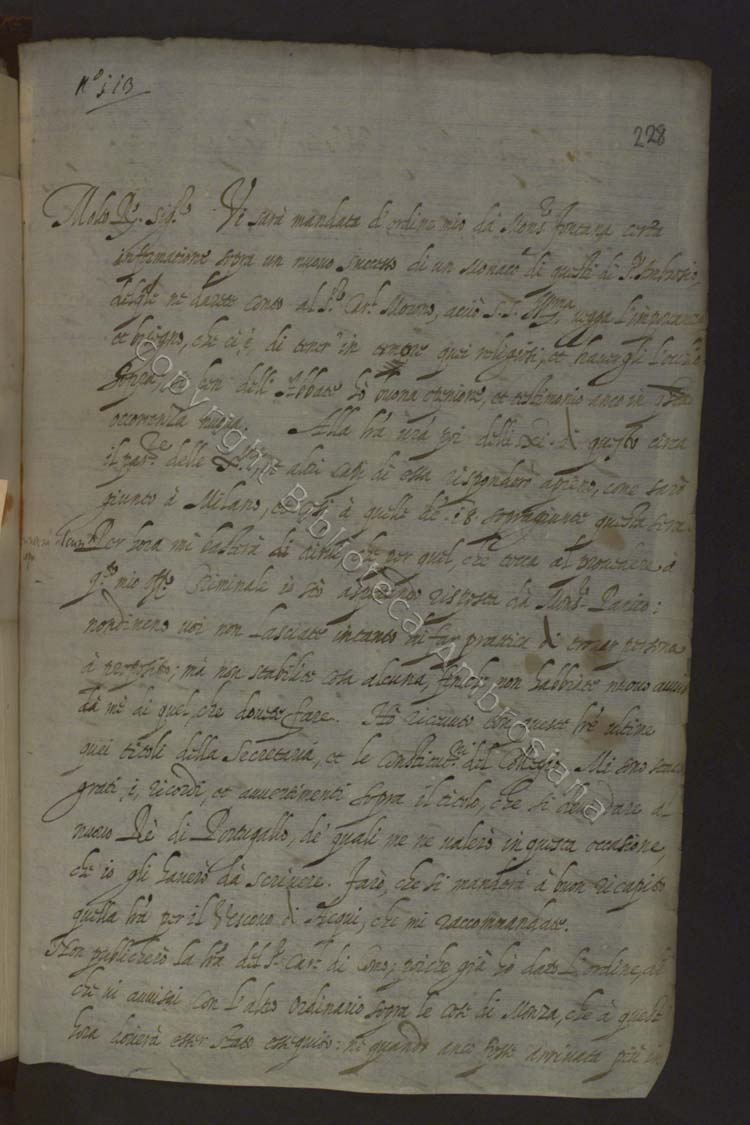 N.º 113
228
Molto R. Sig.re Vi sarà mandata d'ordine mio da Mons.r Fontana certa
informatione sopra un nuovo successo di un Monaco di questi di S.to Ambrosio,
del qle ne darete conto al S.r Car.l Morone, acciò S. S. Ill.ma vegga l'importanza
et bisogno, che ci è, di tener in timore quei religiosi, et havergli l'occhio
sopra, se ben dell'Abbate hò buona opinione, et testimonio anco in
occorrenza nuova. Alla l'ra v'ra pri delli XI di questo circa
il delle et altri capi di essa risponderò appieno, come sarò
giunto à Milano, et così à quelle de' 18. sopragiunte questa sera
Per hora mi basterà di dirvi che per quel, che tocca al provedere à
q.to mio off.o Criminale io stò aspettando risposta da Mons.r Panico:
nondimeno voi non lasciate intanto di far prattica di trovar persona
à proposito; mà non stabilite cosa alcuna, finche non habbiate nuovo aviso
da mè di quel, che dovete fare. Hò ricevuto con queste l're ultime
quei titoli della Secretaria, et le constitut.ni del Concilio. Mi sono stati
grati, i, ricordi, et avvertimenti sopra il titolo, che si deve dare al
nuovo Rè di Portugallo, de' quali me ne valerò in questa occasione,
che io gli haverò da scrivere. Farò, che si manderà à buon ricapito
quella l'ra per il Vescovo di Acqui, che mi raccommandate.
Non publicherò la l'ra del S.r Car.l di Como, poiche già hò dato l'ordine,
che vi avvisai con l'altro ordinario sopra le cose di Monza, che à quest'
hora doverà esser stato essequito: nè quando anco fosse arrivata più
Copyright Biblioteca Ambrosiana